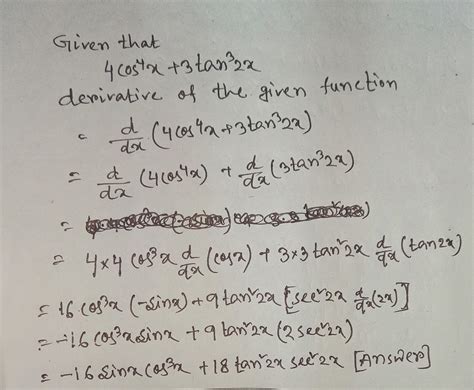 Given that
4cos⁴x+3tan³2x
derivative of the given function
= d/dx (4cos⁴x+3tan³2x)
= d/dx (4cos⁴x) + d/dx (3tan³2x)
=
= 4×4 cos³x d/dx (cosx) + 3×3 tan²2x d/dx (tan2x)
= 16 cos³x (-sinx) + 9 tan²2x [sec²2x d/dx (2x)]
= -16 cos³x sinx + 9 tan²2x (2 sec²2x)
= -16 sinx cos³x + 18 tan²2x sec²2x [Answer]